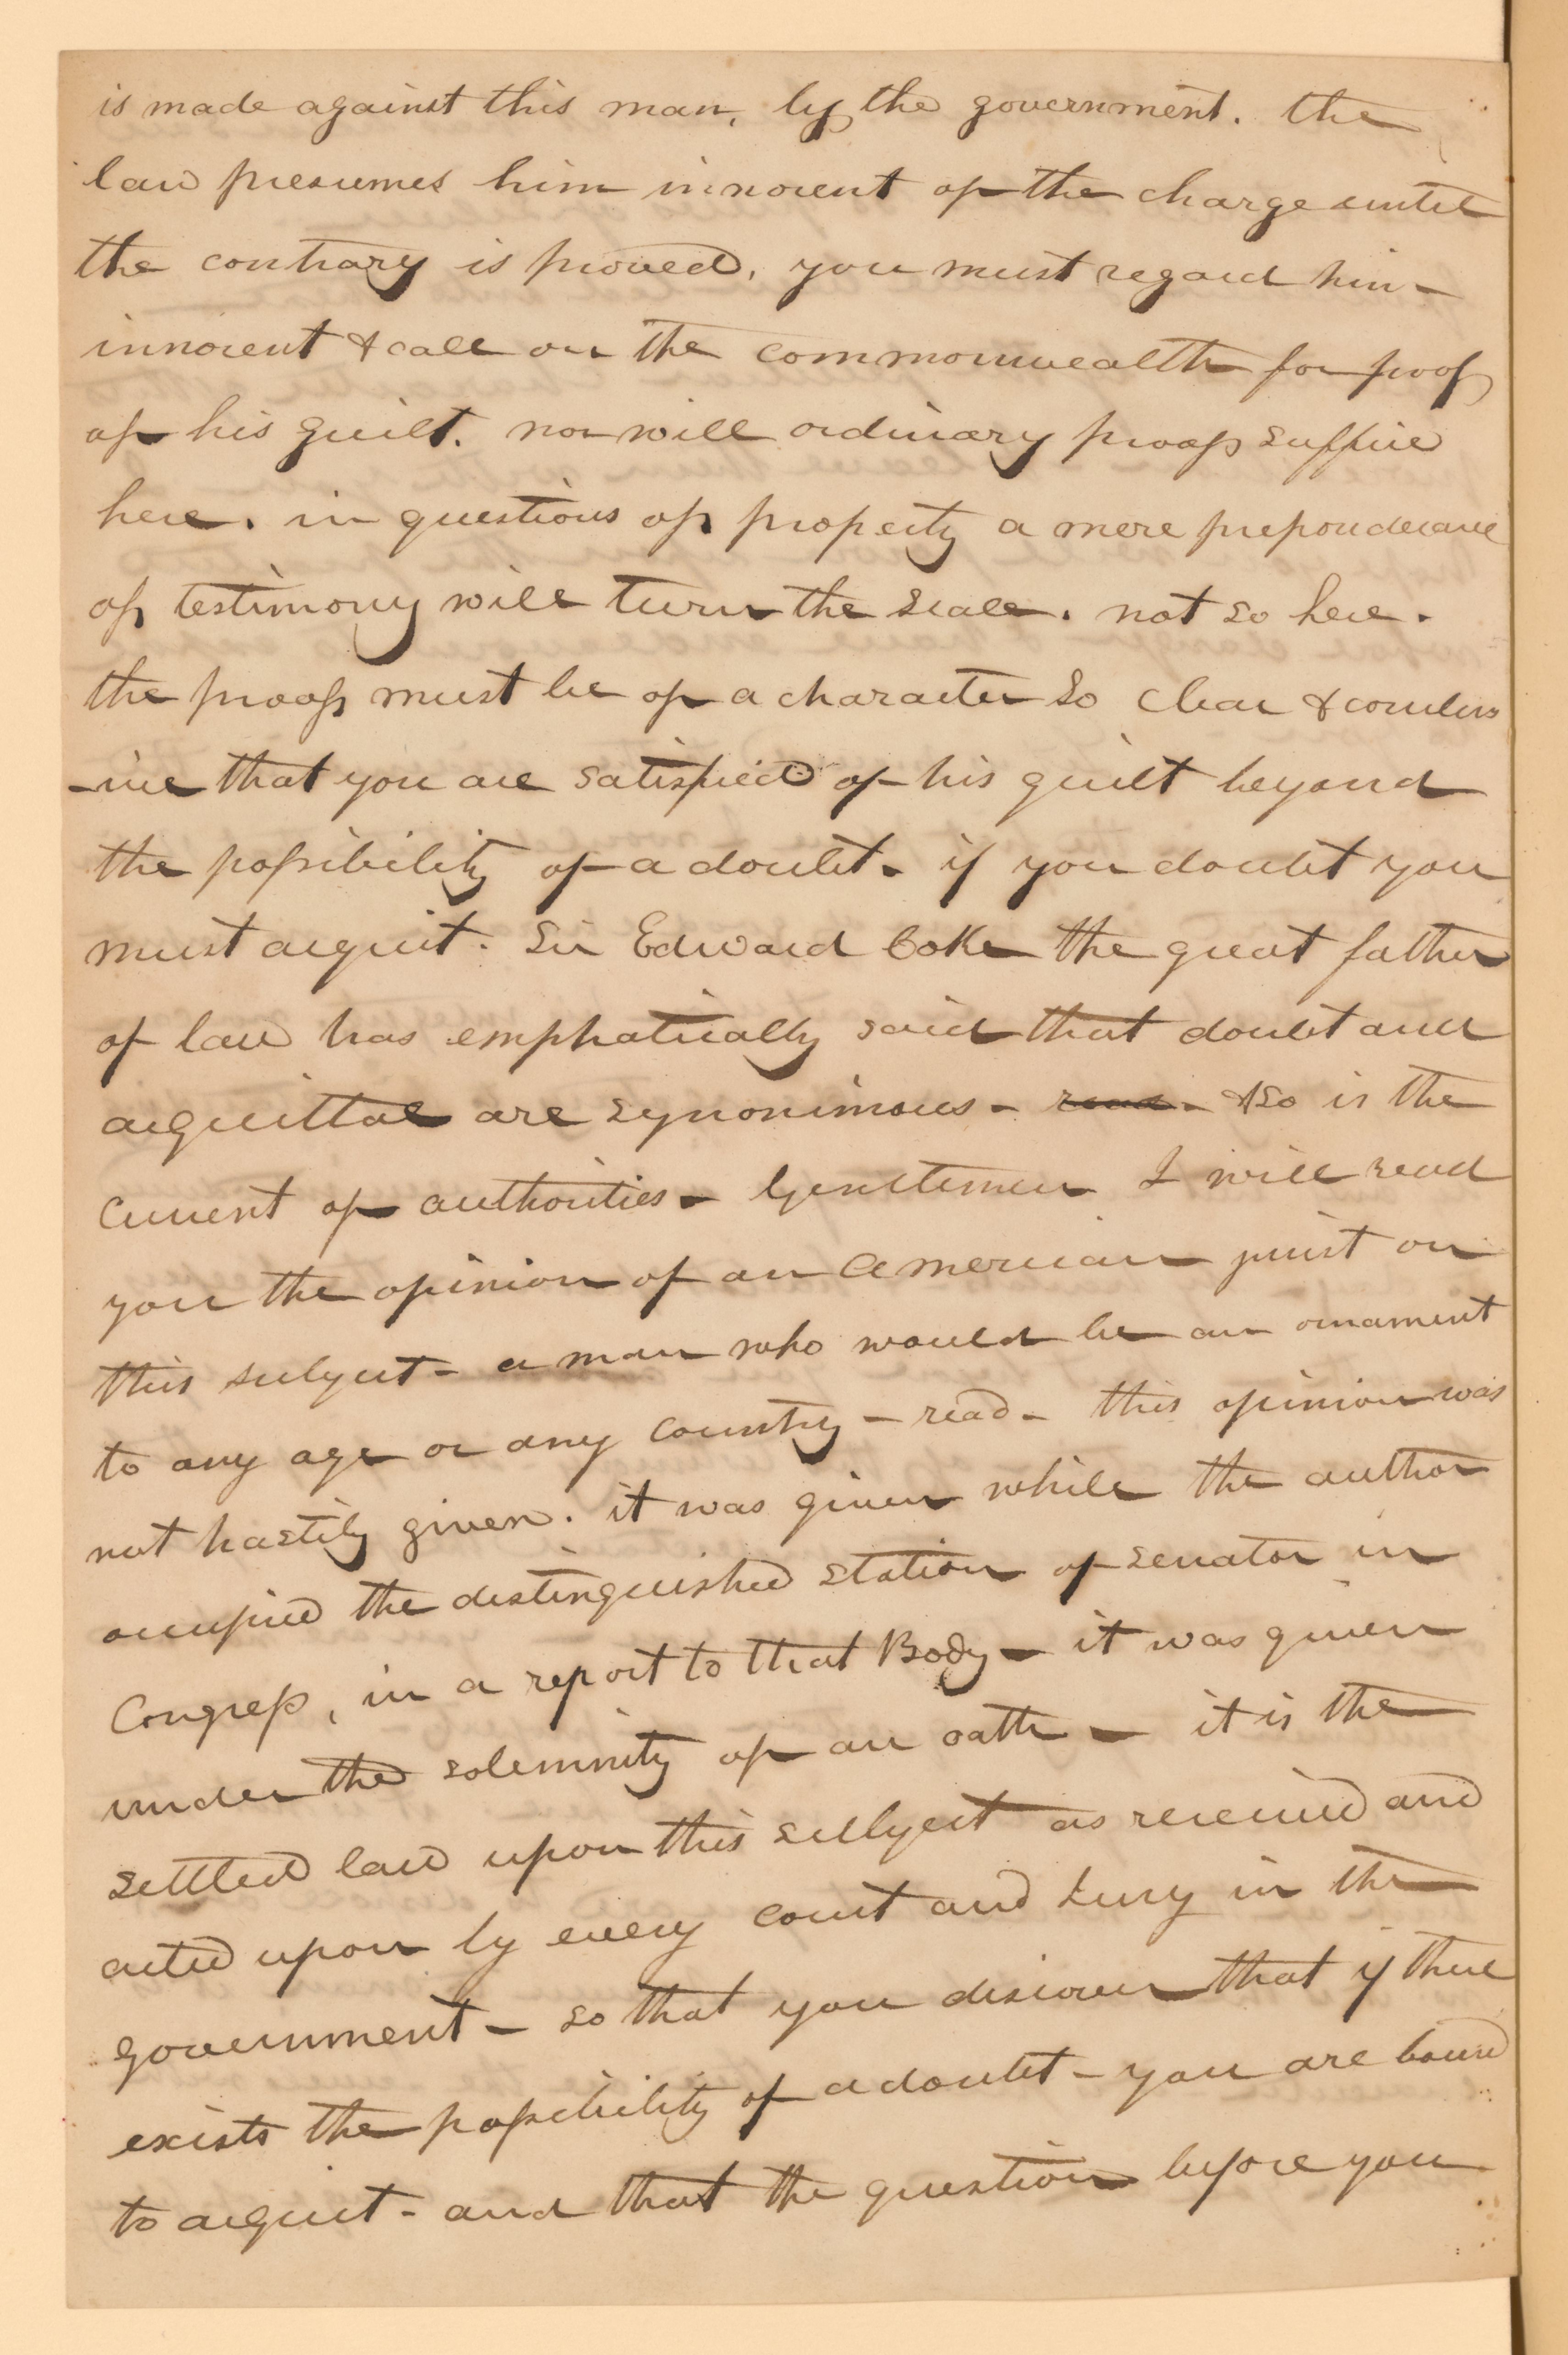 is made against this man, by the government. the
law presumes him innocent of the charge until
the contrary is proved, you must regard him
innocent & call on the commonwealth for proof
of his guilt. nor will ordinary proof suffice
here. in questions of property a mere preponderance
of testimony will turn the scale. not so here.
the proof must be of a character so clear & conclus
-ive that you are satisfied of his guilt beyond
the possibility of a doubt - if you doubt you
must acquit. Sir Edward Coke the great father
of law has emphatically said that doubt and
acquittal are synonimous - read - & so is the
current of authorities - Gentlemen I will read
you the opinion of an American jurist on
this subject - a man who would be an ornament
to any age or any country - read - this opinion was
not hastily given. it was given while the author
occupied the distinguished station of senator in
Congress, in a report to that Body - it was given
under the solemnity of an oath - it is the
settled law upon this subject as received and
acted upon by every court and Jury in the
government - so that you discover that if there
exists the possibility of a doubt - you are bound
to acquit - and that the question before you